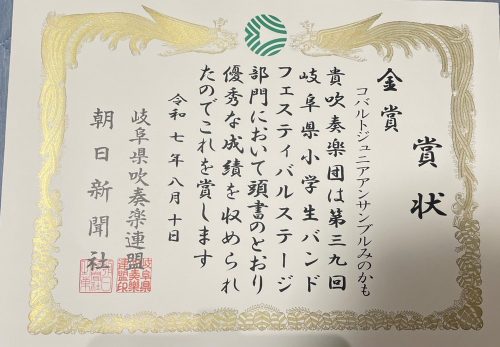 賞状
金賞
コバルトジュニアアンサンブルみのかも
貴吹奏楽団は第三九回
岐阜県小学生バンド
フェスティバルステージ
部門において頭書のとおり
優秀な成績を収められ
たのでこれを賞します
令和七年八月十日
岐阜県吹奏楽連盟
朝日新聞社
岐阜県
吹奏楽
連盟印